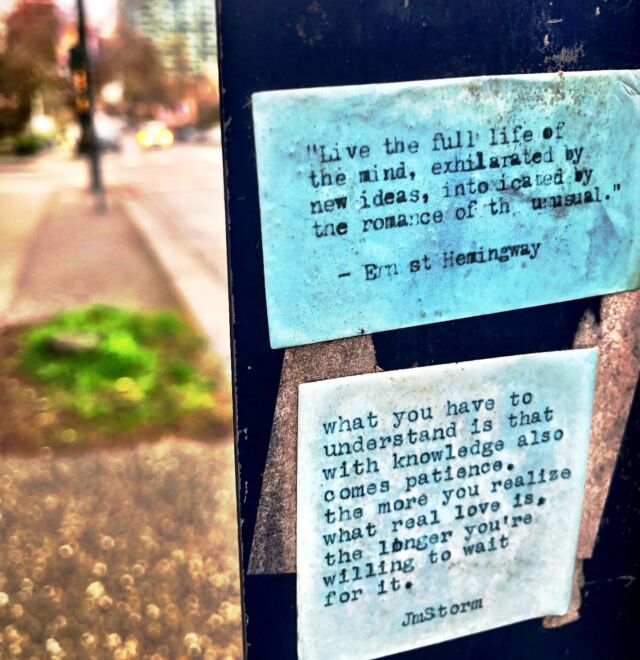 "Live the full life of
the mind, exhilarated by
new ideas, intoxicated by
the romance of the unusual."
- Ernest Hemingway
what you have to
understand is that
with knowledge also
comes patience.
the more you realize
what real love is,
the longer you're
willing to wait
for it.
JmStorm